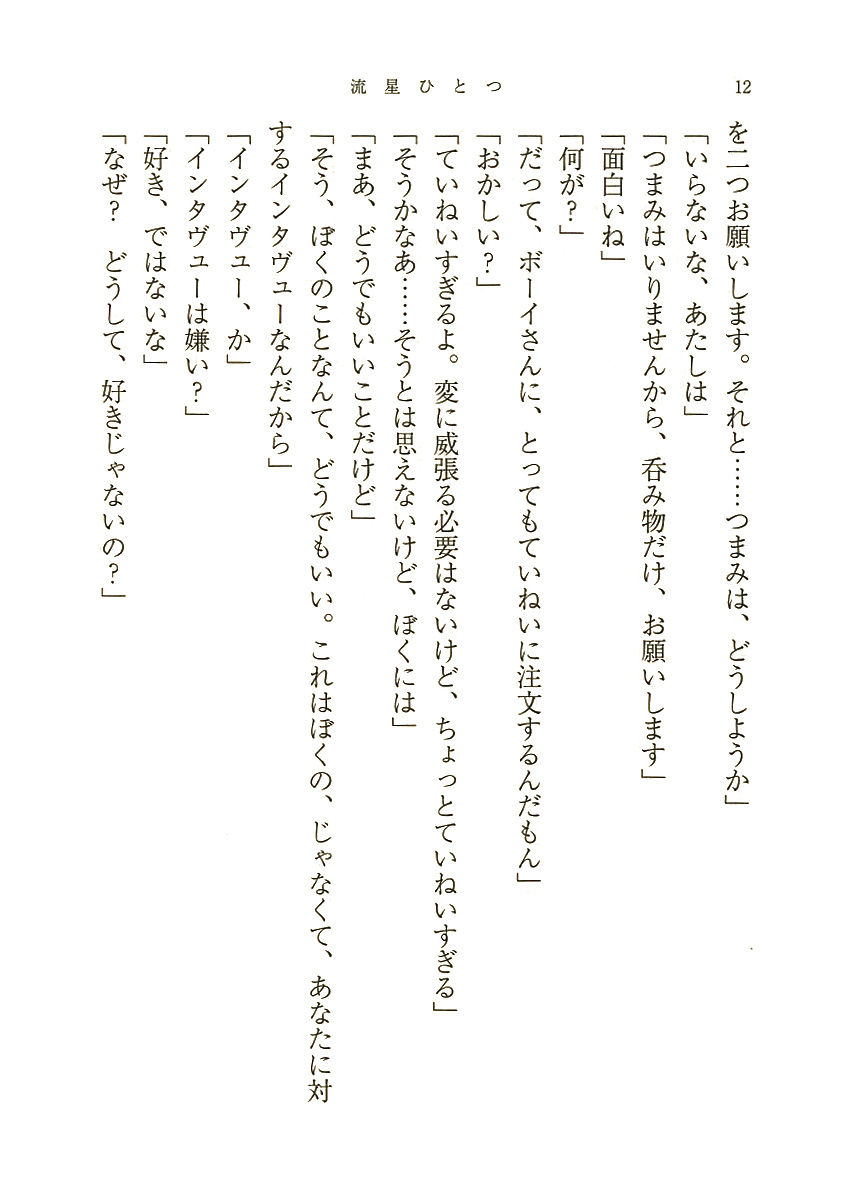 流星ひとつ
12
を二つお願いします。それと……つまみは、どうしようか」
「いらないな、あたしは」
「つまみはいりませんから、呑み物だけ、お願いします」
「面白いね」
「何が?」
「だって、ボーイさんに、とってもていねいに注文するんだもん」
「おかしい?」
「ていねいすぎるよ。変に威張る必要はないけど、ちょっとていねいすぎる」
「そうかなあ……そうとは思えないけど、ぼくには」
「まあ、どうでもいいことだけど」
「そう、ぼくのことなんて、どうでもいい。これはぼくの、じゃなくて、あなたに対
するインタヴューなんだから」
「インタヴュー、か」
「インタヴューは嫌い?」
「好き、ではないな」
「なぜ? どうして、好きじゃないの?」